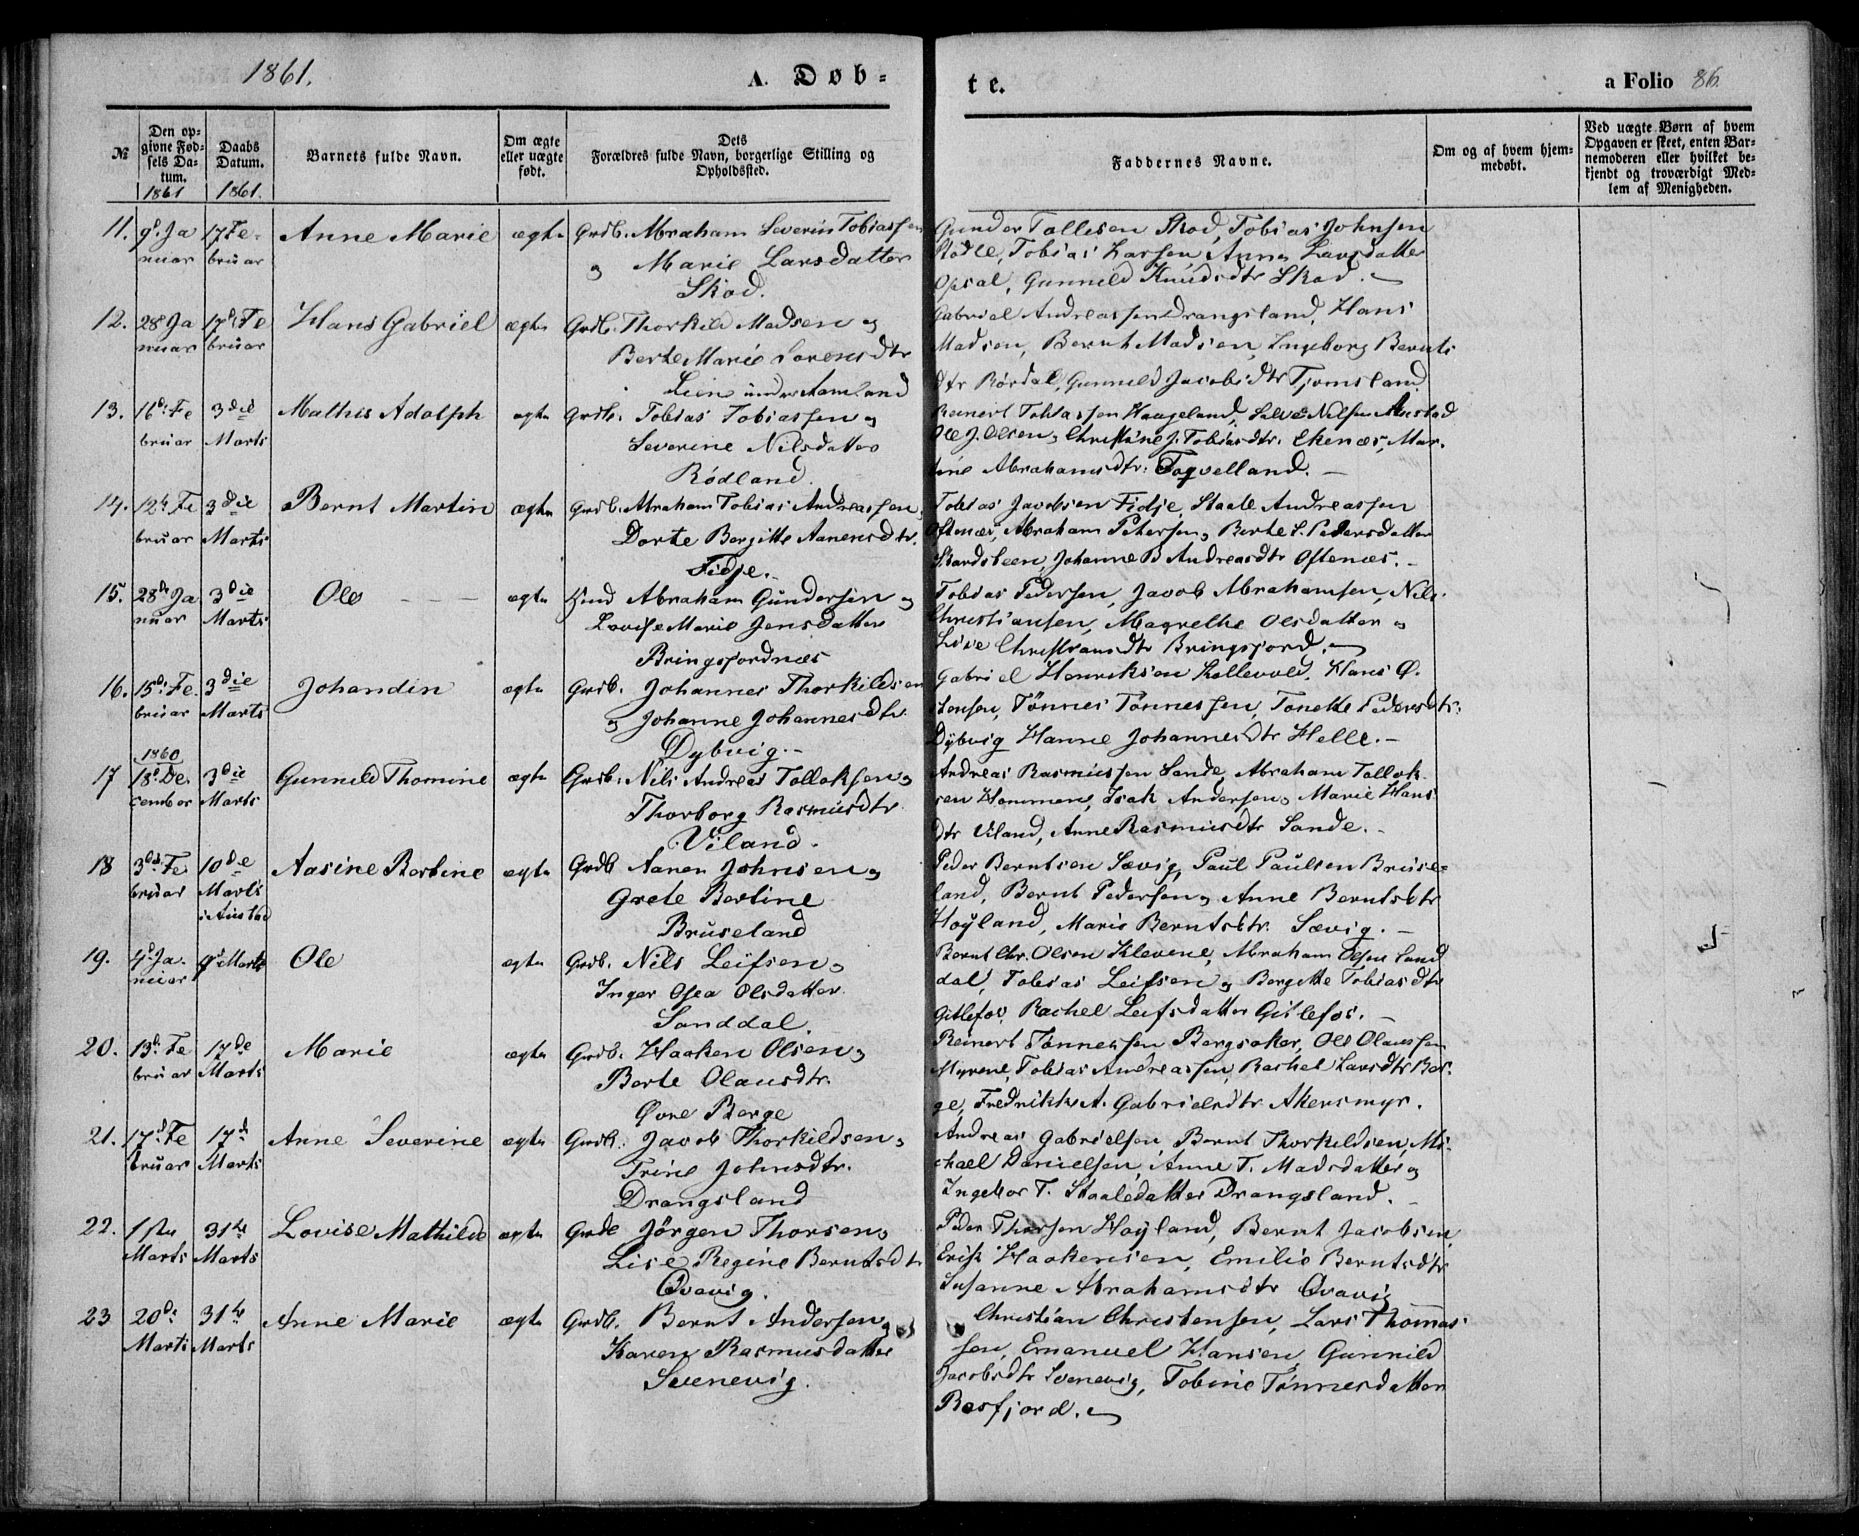 1861.
A. Døb=
te.
a Folio 86.
№
Den op=
givne Fød=
sels Da=
tum.
1861
Daabs
Datum.
1861.
Barnets fulde Navn.
Om ægte
eller uægte
født.
Dets
Forældres fulde Navn, borgerlige Stilling og
Opholdssted.
Faddernes Navne.
Om og af hvem hjem=
medøbt.
Ved uægte Børn af hvem
Opgaven er skeet, enten Bar=
nemoderen eller hvilket be=
kjendt og troværdigt Med=
lem af Menigheden.
11. 9d. Ja 17 Fe- Anne Marie ægte Grdb. Abraham Severin Tobiassen
nuar bruar og Marie Larsdatter
Skod.
Gunder Tollesen Skod, Tobias Johnsen
Rødle, Tobias Larsen, Anne Larsdatter
Opsal, Gunnild Knudsdtr Skod.
12. 28 Ja 17d. Fe Hans Gabriel ægte Grdb. Thorkild Madsen og
nuar bruar Berte Marie Sorensdtr
Lien under Aamland
Gabriel Andreassen Drangsland, Hans
Madsen, Bernt Madsen, Ingeborg Bernts
dtr Rördal, Gunnild Jacobsdtr Tjomsland.
13. 16d. Fe 3die Mathis Adolph ægte Grdb. Tobias Tobiassen og
bruar Marts Severine Nilsdatter
Rødland.
Reinert Tobiassen Haageland, Salve Nilsen Austad
Ole J. Olsen, Christine J. Tobiasdtr. Ekenæs, Mar-
tine Abrahamsdtr. Foqvelland. -
14. 12te Fe 3die Bernt Martin ægte Grdb. Abraham Tobias Andreassen,
bruar Marts Dorte Bergitte Aanensdtr.
Fidje. -
Tobias Jacobsen Fidje, Staale Andreassen
Oftenæs, Abraham Petersen, Berte S. Pedersdatter
Skardsteen, Johanne B Andreasdtr Oftenæs. -
15. 28de Ja 3die Ole - - ægte Hmd Abraham Gundersen og
nuar Marts Lovise Marie Jensdatter
Bringsfjordnæs
Tobias Pedersen, Jacob Abrahamsen, Nils
Christiansen, Magrethe Olsdatter og
Live Christiansdtr Bringsfjord.
16. 15d. Fe 3die Johandin ægte Grdb. Johannes Thorkildsen
bruar Marts og Johanne Johannesdtr.
Dybvig. -
Gabriel Henriksen Kollevold, Hans Ø.
Jonsen, Tønnes Tønnessen, Tonette Pedersdtr.
Dybvig Hanne Johannesdtr Helle. -
1860
17 18d. De 3die Gunnild Thomine ægte Grdb. Nils Andreas Tollaksen og
cember Marts Thorborg Rasmusdtr.
Viland.
Andreas Rasmussen Sande, Abraham Tollak
sen Hommen, Isak Andersen, Marie Hans
dtr Viland, Anne Rasmusdtr Sande. -
18 3die Fe 10de Aasine Bertine ægte Grdb Aanen Johnsen og
bruar Marts Grete Bertine
i Austad Bruseland
Peder Berntsen Sævig, Paul Paulsen Bruse-
land, Bernt Pedersen, Anne Berntsdtr
Høyland, Marie Berntsdtr. Sævig. -
19. 4d. Ja- 9d Marts Ole ægte Grdb. Nils Leifsen og
nuar Inger Osea Olsdatter
Sanddal.
Bernt Chr. Olsen Klevene, Abraham Olsen Sand
dal, Tobias Leifsen og Bergitte Tobiasdtr
Gitlefos, Rachel Leifsdatter Gitlefos. -
20. 13d. Fe 17de Marie ægte Grdb. Haaken Olsen og
bruar Marts Berte Olausdtr.
Øvre Berge
Reinert Tønnessen Bergsaker, Ole Olaussen
Myrene, Tobias Andreassen, Rachel Larsdtr Ber-
ge, Fredrikke A. Gabrielsdtr Akersmyr.
21. 17d Fe 17d Anne Severine ægte Grdb. Jacob Thorkildsen og
bruar Marts Trine Johnsdtr.
Drangsland
Andreas Gabrielsen, Bernt Thorkildsen, Mi-
chael Danielsen, Anne T. Madsdatter og
Ingebor T. Staalesdatter Drangsland. -
22. 1ste 31te Lovise Mathilde ægte Grdb Jörgen Thorsen og
Marts Marts Lise Regine Berntsdtr
Qvavig.
Peder Thorsen Høyland, Bernt Jacobsen,
Erik Haakensen, Emilie Berntsdtr
Susanne Abrahamsdtr Qvavig
23 20d. 31te Anne Marie ægte Grdb. Bernt Andersen og
Marts Marts Karen Rasmusdatter
Svenevig.
Christian Christensen, Lars Thomas-
sen, Emanuel Hansen, Gunnild
Jacobsdtr Svenevig, Tobine Tönnesdatter
Rosfjord.